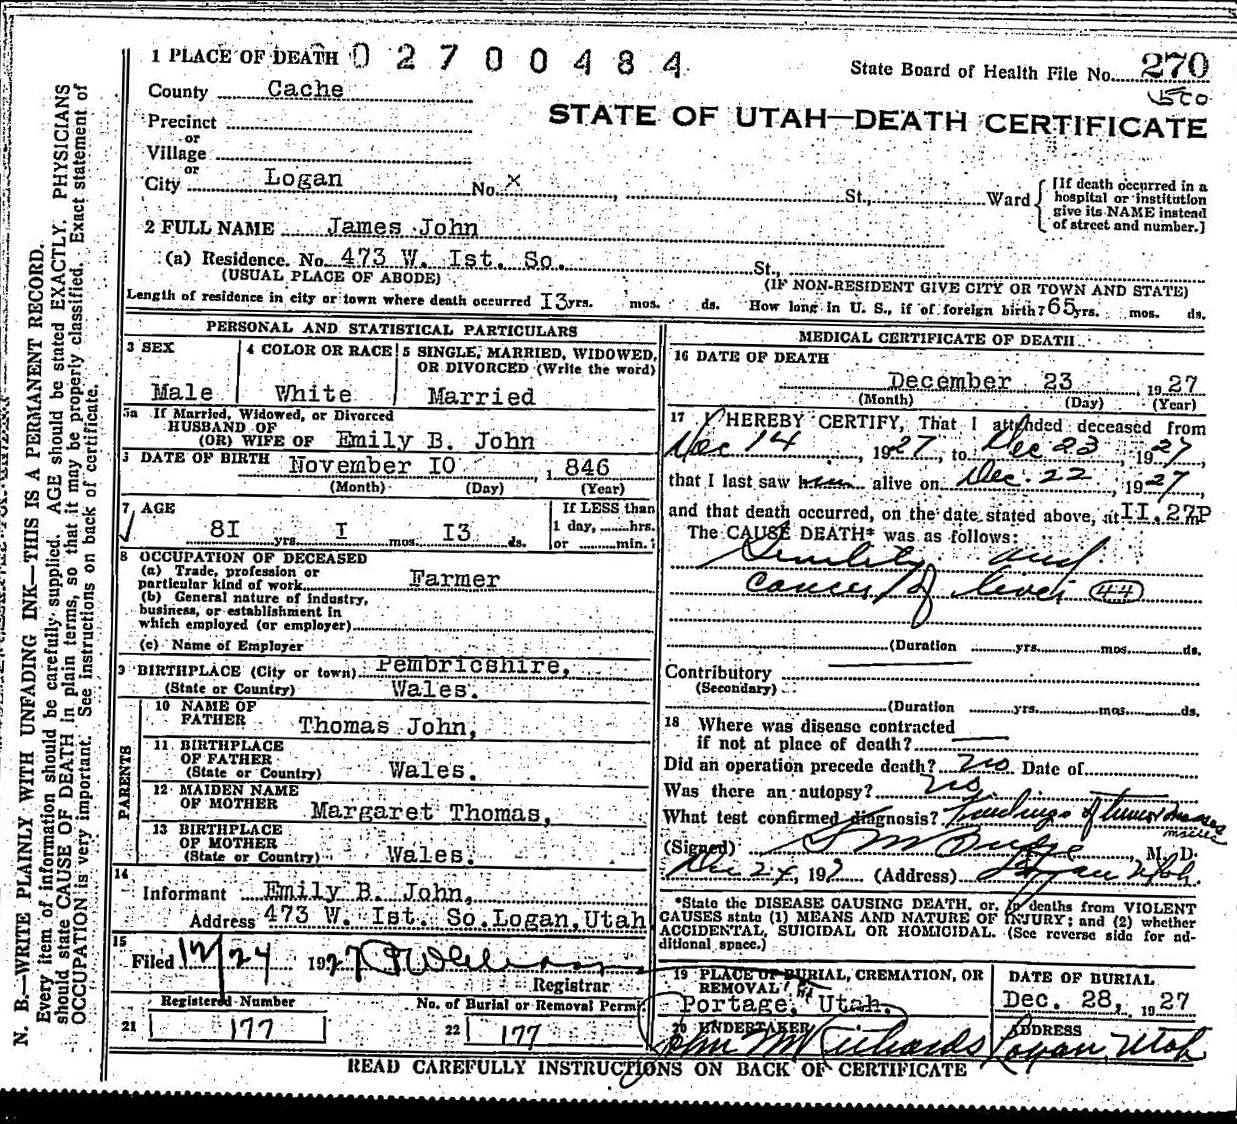 N. B.—WRITE PLAINLY WITH UNFADING INK—THIS IS A PERMANENT RECORD.
Every item of information should be carefully supplied. AGE should be stated EXACTLY. PHYSICIANS
should state CAUSE OF DEATH in plain terms, so that it may be properly classified. Exact statement of
OCCUPATION is very important. See instructions on back of certificate.
1 PLACE OF DEATH 02700484
State Board of Health File No. 270
County Cache
STATE OF UTAH—DEATH CERTIFICATE
Precinct
or
Village
or
City Logan No. x St., Ward
[If death occurred in a
hospital or institution
give its NAME instead
of street and number.]
2 FULL NAME James John
(a) Residence. No. 473 W. Ist. So. St.,
(USUAL PLACE OF ABODE) (IF NON-RESIDENT GIVE CITY OR TOWN AND STATE)
Length of residence in city or town where death occurred I3 yrs. mos. ds. How long in U. S., if of foreign birth? 65 yrs. mos. ds.
PERSONAL AND STATISTICAL PARTICULARS
3 SEX
Male
4 COLOR OR RACE
White
5 SINGLE, MARRIED, WIDOWED,
OR DIVORCED (Write the word)
Married
5a If Married, Widowed, or Divorced
HUSBAND OF
(OR) WIFE OF Emily B. John
DATE OF BIRTH November IO , 1846
(Month) (Day) (Year)
7 AGE
8I yrs. I mos. I3 ds.
If LESS than
1 day, hrs.
or min.
8 OCCUPATION OF DECEASED
(a) Trade, profession or
particular kind of work Farmer
(b) General nature of industry,
business, or establishment in
which employed (or employer)
(c) Name of Employer
9 BIRTHPLACE (City or town) Pembricshire,
(State or Country) Wales.
PARENTS
10 NAME OF
FATHER Thomas John,
11 BIRTHPLACE
OF FATHER
(State or Country) Wales.
12 MAIDEN NAME
OF MOTHER Margaret Thomas,
13 BIRTHPLACE
OF MOTHER
(State or Country) Wales.
14
Informant Emily B. John,
Address 473 W. Ist. So. Logan, Utah
15
Filed 12/24 1927
Registrar
Registered Number
21 177
No. of Burial or Removal Permit
22 177
MEDICAL CERTIFICATE OF DEATH
16 DATE OF DEATH
December 23 , 1927
(Month) (Day) (Year)
17 I HEREBY CERTIFY, That I attended deceased from
Dec 14, 1927, to Dec 23, 1927,
that I last saw him alive on Dec. 22, 1927,
and that death occurred, on the date stated above, at II.27P m
The CAUSE DEATH* was as follows:
Senility and
cancer of liver 44
(Duration yrs. mos. ds.
Contributory
(Secondary)
(Duration yrs. mos. ds.
18 Where was disease contracted
if not at place of death?
Did an operation precede death? No Date of
Was there an autopsy? No.
What test confirmed diagnosis? Findings of tumor
(Signed) S M Budge, M. D.
Dec 24, 192 (Address) Logan Utah.
*State the DISEASE CAUSING DEATH, or, in deaths from VIOLENT
CAUSES state (1) MEANS AND NATURE OF INJURY; and (2) whether
ACCIDENTAL, SUICIDAL OR HOMICIDAL. (See reverse side for ad-
ditional space.)
19 PLACE OF BURIAL, CREMATION, OR
REMOVAL?
Portage, Utah.
DATE OF BURIAL
Dec. 28, 1927
20 UNDERTAKER
John M Richards
ADDRESS
Logan Utah
READ CAREFULLY INSTRUCTIONS ON BACK OF CERTIFICATE